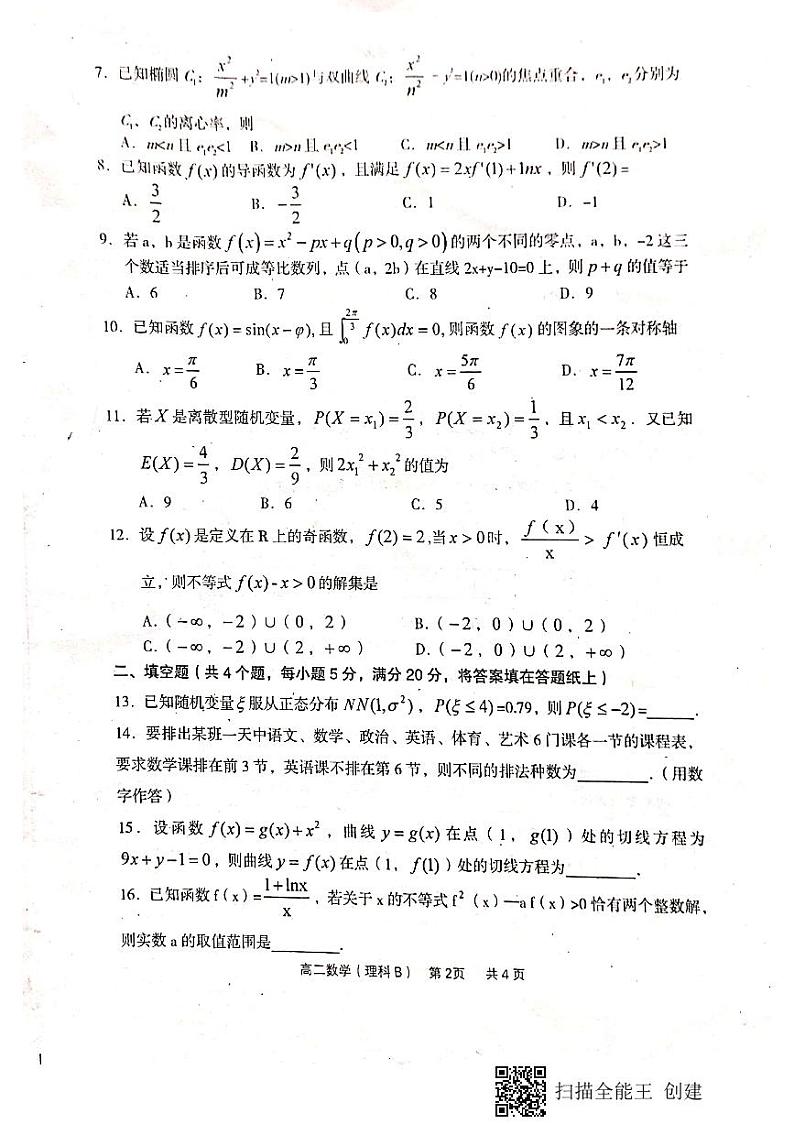 7. 已知椭圆 C₁: x²/m² +y²=1(m>1)与双曲线 C₂: x²/n² - y²=1(n>0)的焦点重合, e₁, e₂分别为
C₁、C₂的离心率, 则
A. m<n 且 e₁e₂<1 B. m>n 且 e₁e₂<1 C. m<n 且 e₁e₂>1 D. m>n 且 e₁e₂>1
8. 已知函数 f(x) 的导函数为 f'(x), 且满足 f(x) = 2xf'(1)+lnx, 则 f'(2) =
A. 3/2 B. -3/2 C. 1 D. -1
9. 若a, b 是函数 f(x)=x²-px+q(p>0,q>0)的两个不同的零点, a, b, -2 这三
个数适当排序后可成等比数列, 点(a, 2b)在直线 2x+y-10=0 上, 则 p+q 的值等于
A. 6 B. 7 C. 8 D. 9
10. 已知函数 f(x) = sin(x-φ), 且 ∫₀^(2π/3) f(x)dx = 0, 则函数 f(x) 的图象的一条对称轴
A. x=π/6 B. x=π/3 C. x=5π/6 D. x=7π/12
11. 若 X 是离散型随机变量, P(X = x₁) = 2/3, P(X = x₂) = 1/3, 且 x₁ < x₂. 又已知
E(X) = 4/3, D(X) = 2/9, 则 2x₁²+x₂² 的值为
A. 9 B. 6 C. 5 D. 4
12. 设 f(x) 是定义在 R 上的奇函数, f(2) = 2,当 x > 0时, f(x)/x > f'(x) 恒成
立, 则不等式 f(x)-x>0 的解集是
A. (-∞, -2)∪(0, 2) B. (-2, 0)∪(0, 2)
C. (-∞, -2)∪(2, +∞) D. (-2, 0)∪(2, +∞)
二、填空题(共4个题, 每小题5分, 满分20分, 将答案填在答题纸上)
13. 已知随机变量 ξ 服从正态分布 NN(1,σ²), P(ξ ≤ 4)=0.79, 则 P(ξ ≤ -2)=______.
14. 要排出某班一天中语文、数学、政治、英语、体育、艺术6门课各一节的课程表,
要求数学课排在前3节, 英语课不排在第6节, 则不同的排法种数为________.(用数
字作答)
15. 设函数 f(x) = g(x)+x², 曲线 y = g(x) 在点(1, g(1))处的切线方程为
9x+y-1=0, 则曲线 y = f(x) 在点(1, f(1))处的切线方程为________.
16. 已知函数f(x)=(1+lnx)/x, 若关于x的不等式f²(x)—af(x)>0恰有两个整数解,
则实数a的取值范围是________.
高二数学(理科B) 第2页 共4页
1
扫描全能王 创建